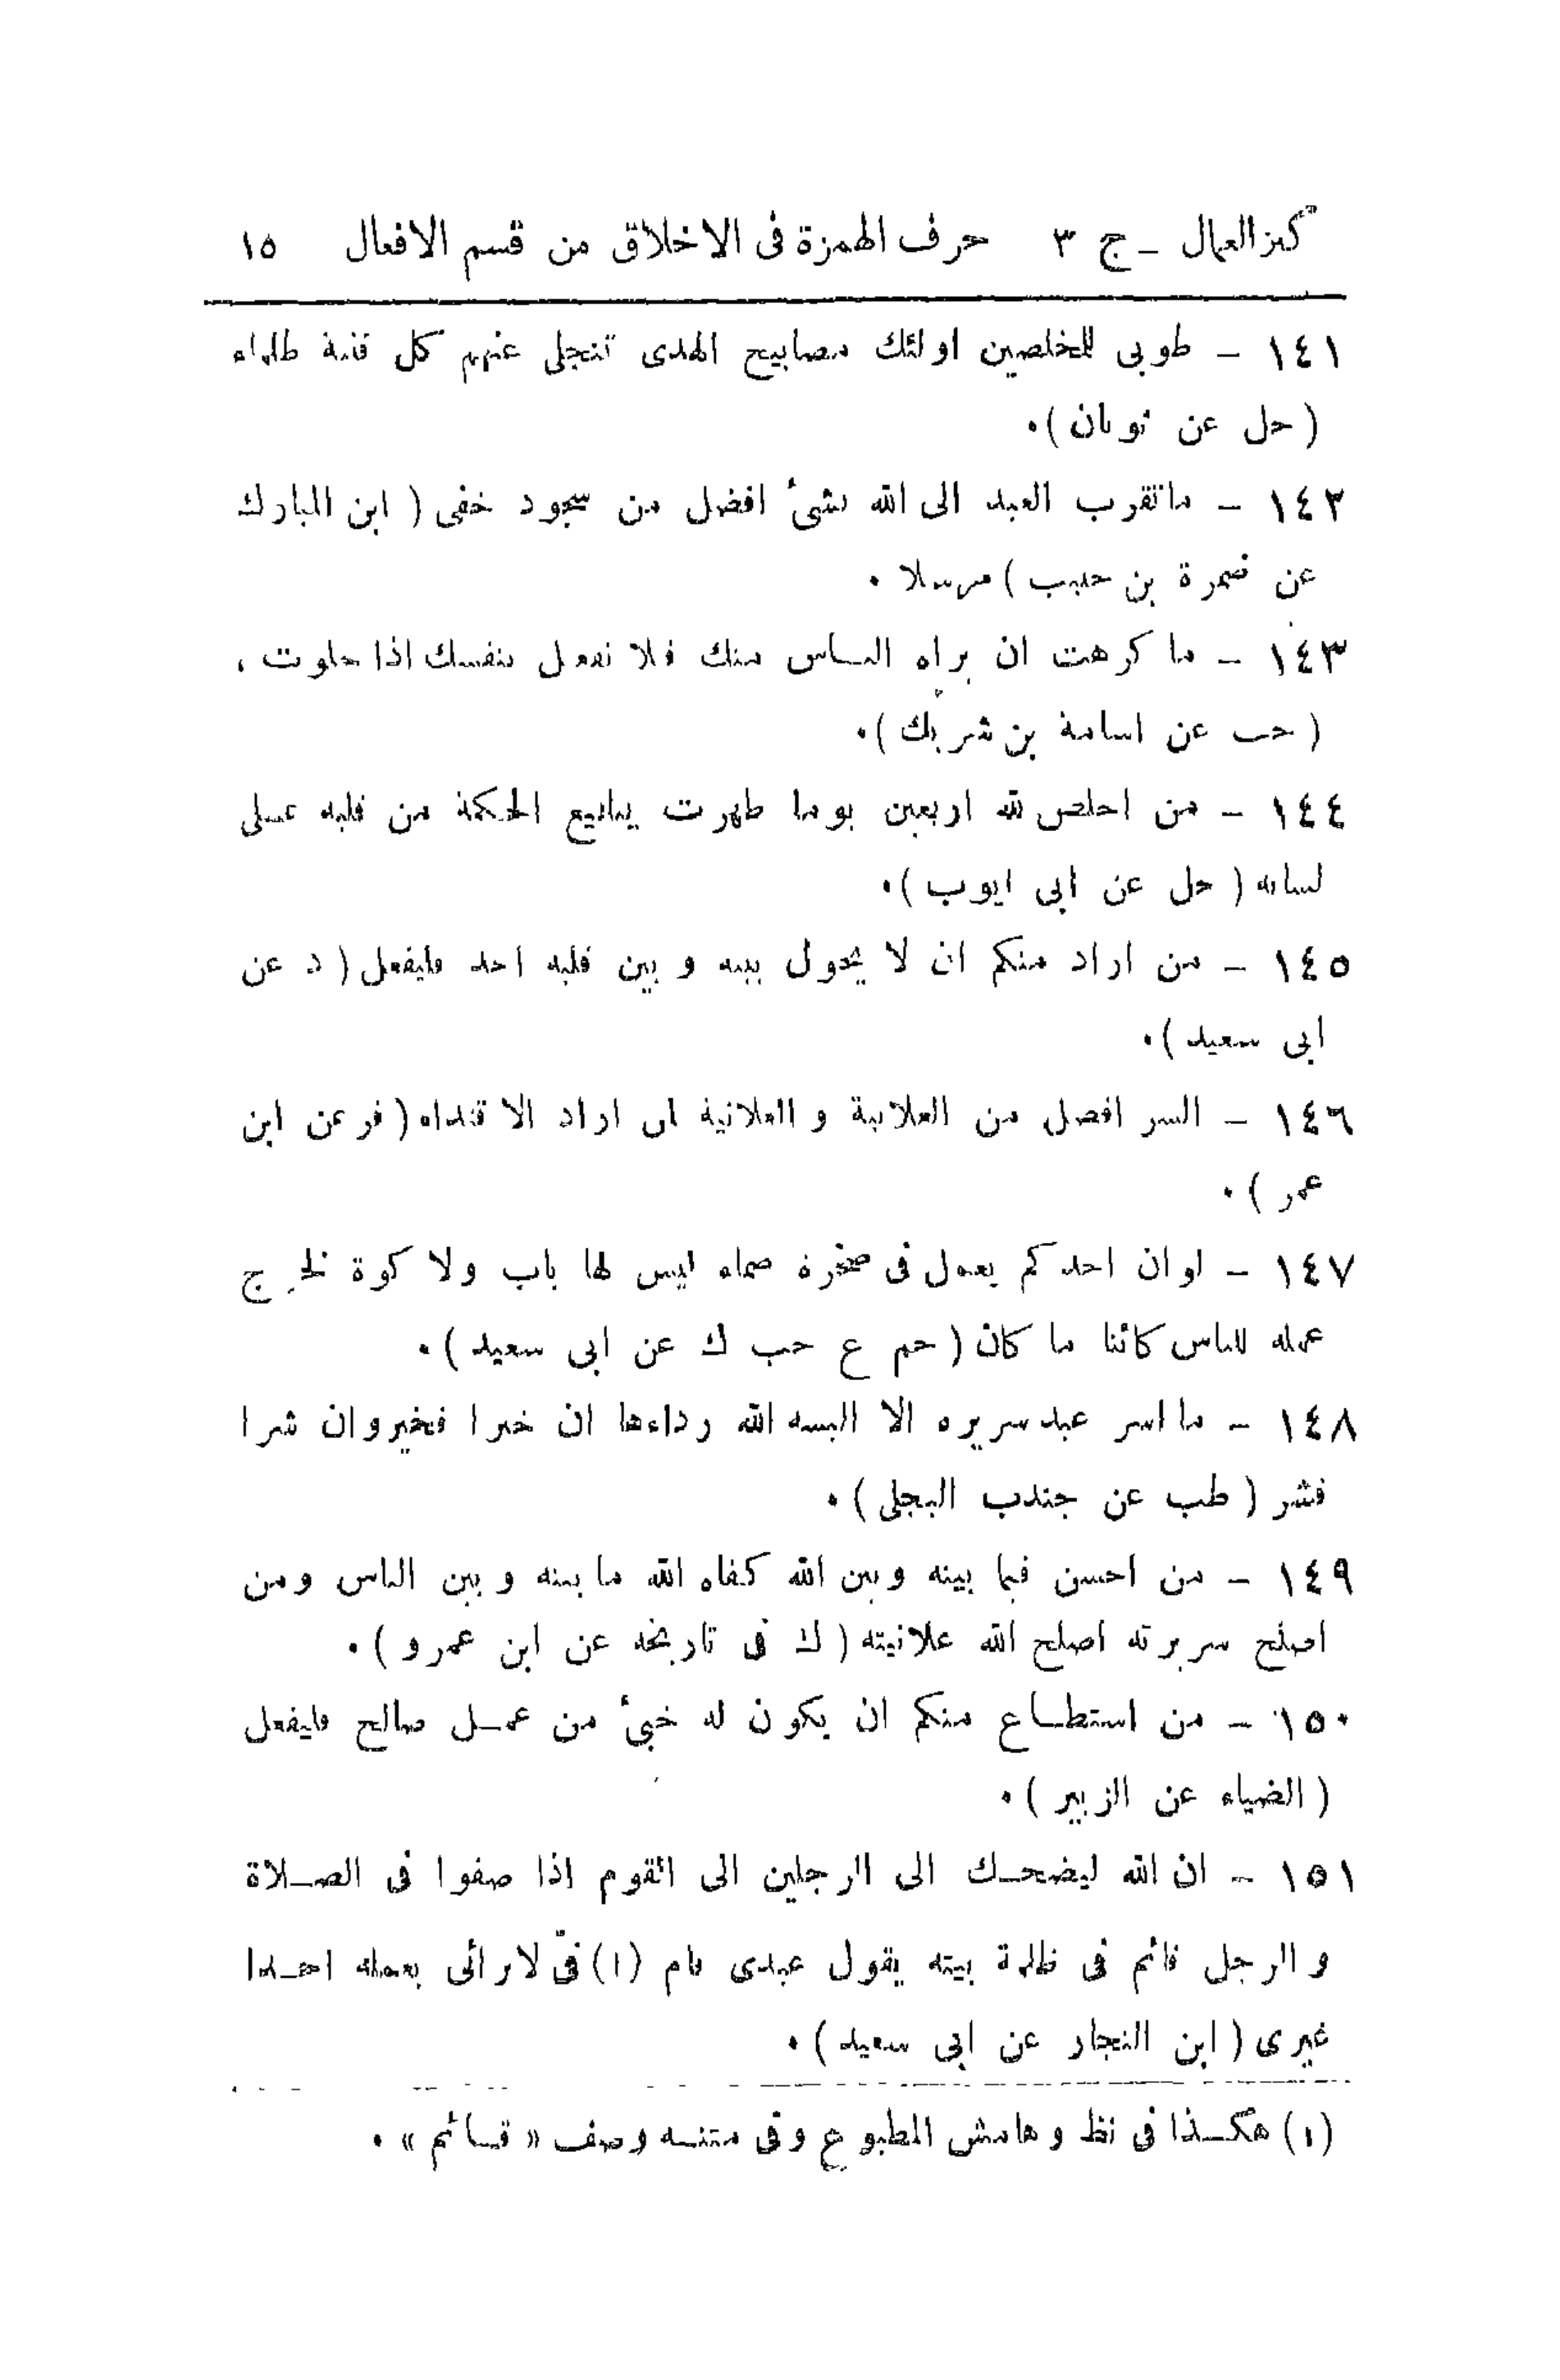 كنز العمال - ج ٣ حرف الهمزة فى الاخلاق من قسم الافعال ١٥
١٤١ - طوبى للمخلصين اولئك مصابيح الهدى تنجلى عنهم كل فتنة ظلماء
( حل عن ثوبان ).
١٤٢ - ماتقرب العبد الى الله بشئ افضل من سجود خفى ( ابن المبارك
عن ضمرة بن حبيب ) مرسلا .
١٤٣ - ما كرهت ان يراه الناس منك فلا تفعل بنفسك اذا خلوت ،
( حب عن اسامة بن شريك ).
١٤٤ - من اخلص لله اربعين يوما ظهرت ينابيع الحكمة من قلبه عــلى
لسانه ( حل عن ابى ايوب ).
١٤٥ - من اراد منكم ان لا يحول بينه و بين قلبه احد فليفعل ( د عن
ابى سعيد ).
١٤٦ - السر افضل من العلانية و العلانية لمن اراد الاقتداء ( فر عن ابن
عمر ) .
١٤٧ - لو ان احدكم يعمل فى صخرة صماء ليس لها باب ولا كوة لخرج
عمله للناس كائنا ما كان ( حم ع حب ك عن ابى سعيد ) .
١٤٨ - ما اسر عبد سريره الا البسه الله رداءها ان خيرا فخير وان شرا
فشر ( طب عن جندب البجلى ) .
١٤٩ - من احسن فيما بينه وبين الله كفاه الله ما بينه و بين الناس ومن
اصلح سريرته اصلح الله علانيته ( ك فى تاريخه عن ابن عمرو ) .
١٥٠ - من استطــاع منكم ان يكون له خبئ من عمــل صالح فليفعل
( الضياء عن الزبير ) .
١٥١ - ان الله ليضحــك الى الرجلين الى القوم اذا صفوا فى الصــلاة
و الرجل قائم فى ظلمة بيته يقول عبدى قام (١) فىّ لا يرائى بعمله احــدا
غيرى ( ابن النجار عن ابى سعيد ) .
(١) هكــذا فى نظ و هامش المطبوع وفى متنــه وصف « قــائم » .